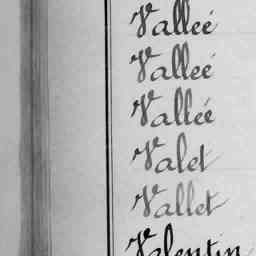 Valleé
Valleé
Vallée
Valet
Vallet
Valentin